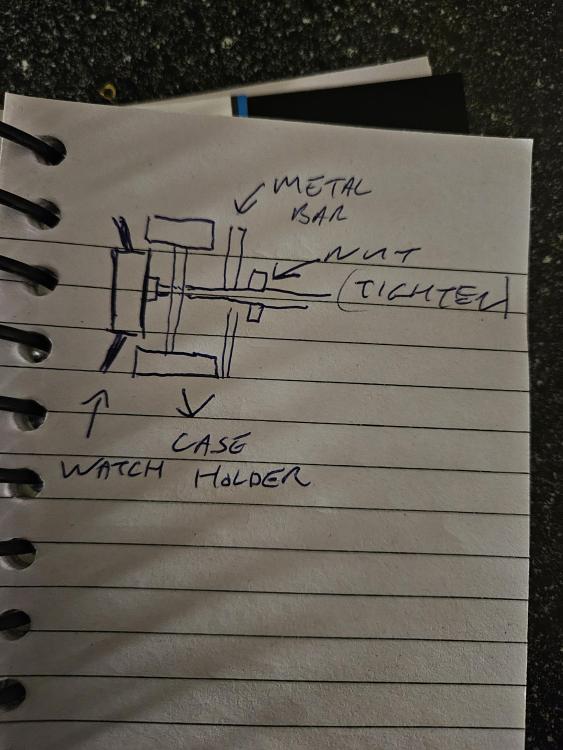 METAL
BAR
NUT
(TIGHTEN)
CASE
WATCH HOLDER